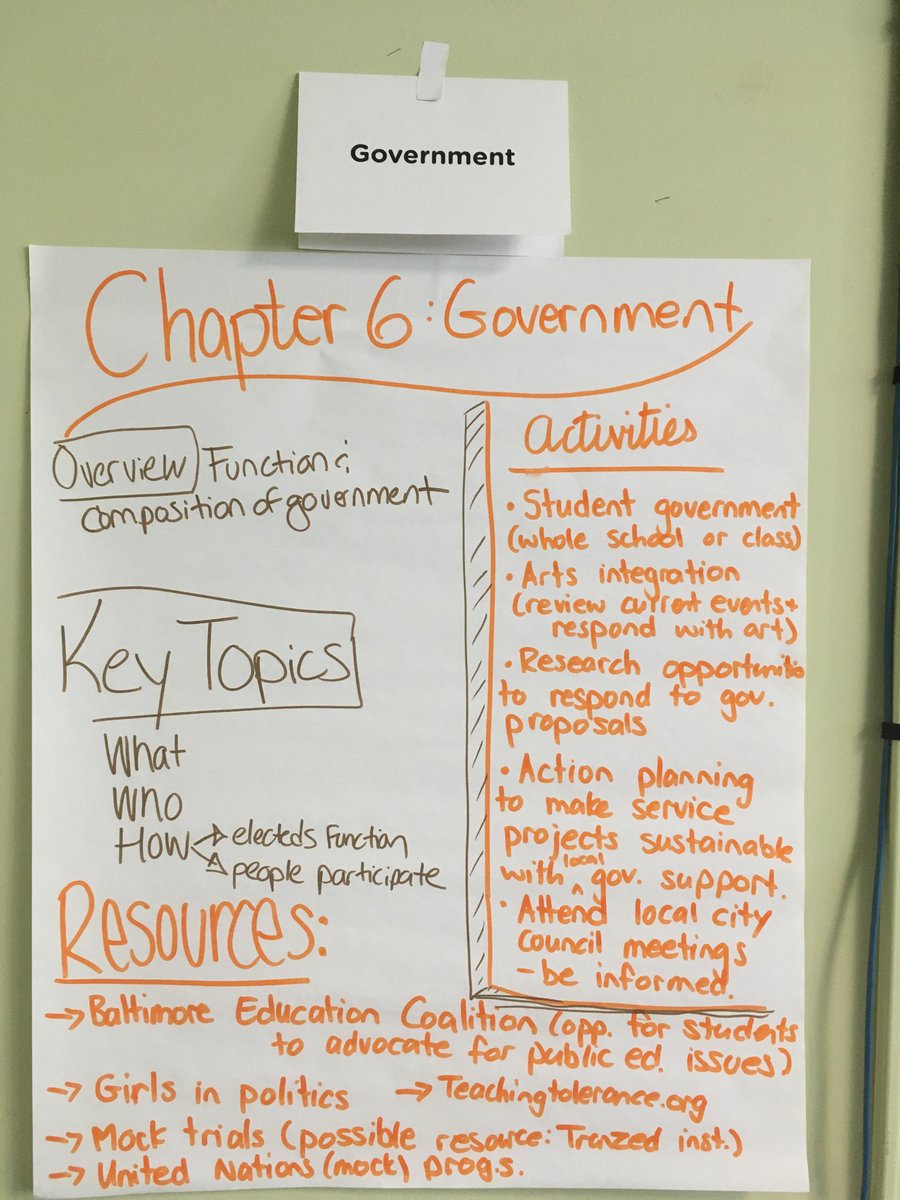 Government
Chapter 6: Government
Overview Function &
composition of government
Key Topics
What
Who
How → electeds Function
→ people participate
Activities
• Student government
(whole school or class)
• Arts integration
(review current events +
respond with art)
• Research opportunities
to respond to gov.
proposals
• Action planning
to make service
projects sustainable
with ^local gov. support.
• Attend local city
council meetings
- be informed.
Resources:
→ Baltimore Education Coalition (opp. for students
to advocate for public ed. issues)
→ Girls in politics → Teachingtolerance.org
→ Mock trials (possible resource: Tranzed inst.)
→ United Nations (mock) progs.